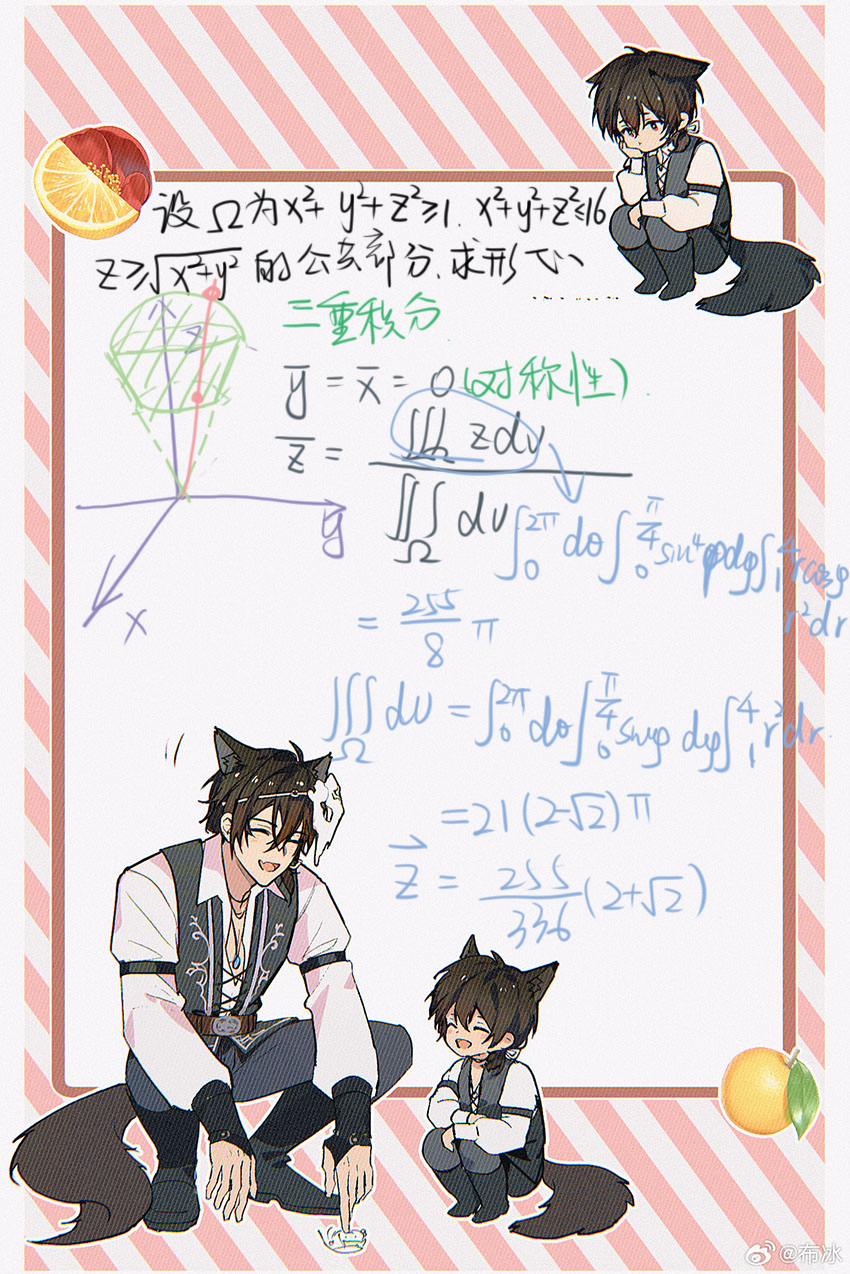 设Ω为x²+y²+z²≥1. x²+y²+z²≤16
z≥√(x²+y²) 的公共部分.求形心
三重积分.
ȳ = x̄ = 0 (对称性).
z̄ = ∭_Ω z dv / ∭_Ω dv
∫₀^{2π} dθ ∫₀^{π/4} sinφ dφ ∫₁⁴ r cosφ r² dr
= 255/8 π
∭_Ω dv = ∫₀^{2π} dθ ∫₀^{π/4} sinφ dφ ∫₁⁴ r² dr.
= 21(2-√2)π
z⃗ = 255/336 (2+√2)
z
y
x
@布冰